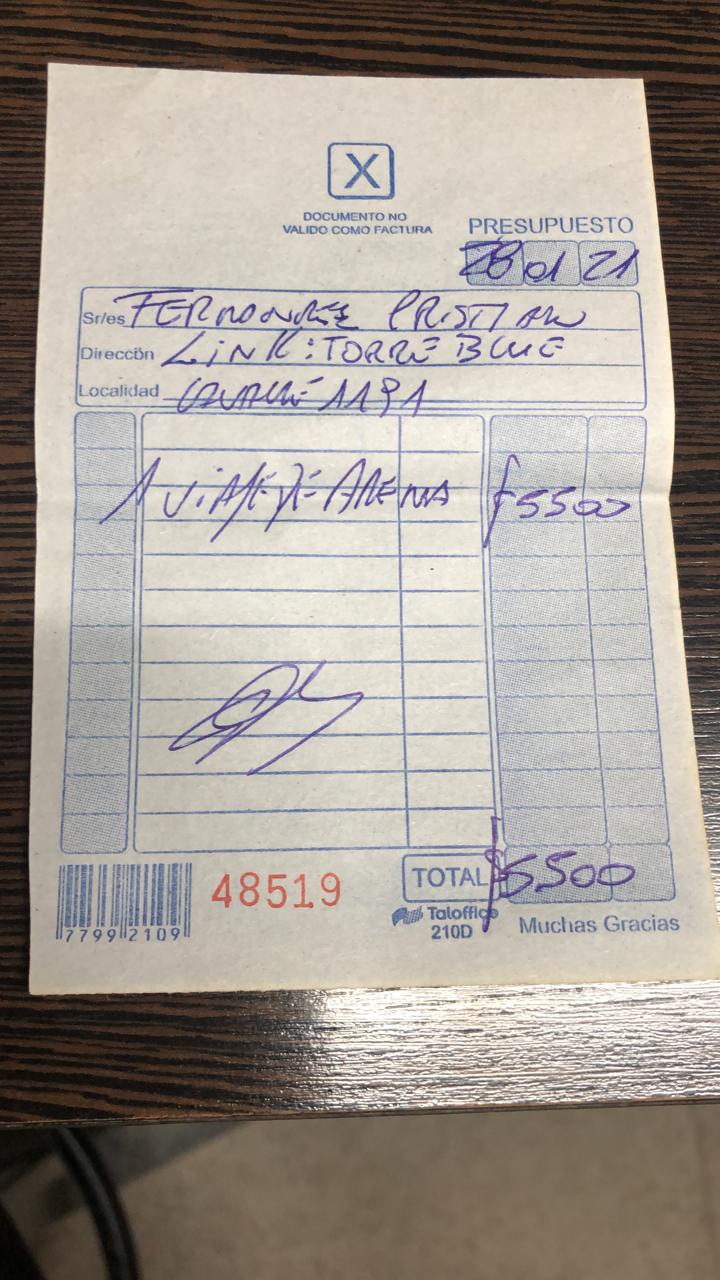 X
DOCUMENTO NO
VALIDO COMO FACTURA
PRESUPUESTO
28 01 21
Sr/es FERNANDEZ CRISTIAN
Dirección LINK: TORRE BLUE
Localidad 1191
1 VIAJE DE ARENA $5500
TOTAL $5500
48519
7799 2109
Taloffice
210D
Muchas Gracias